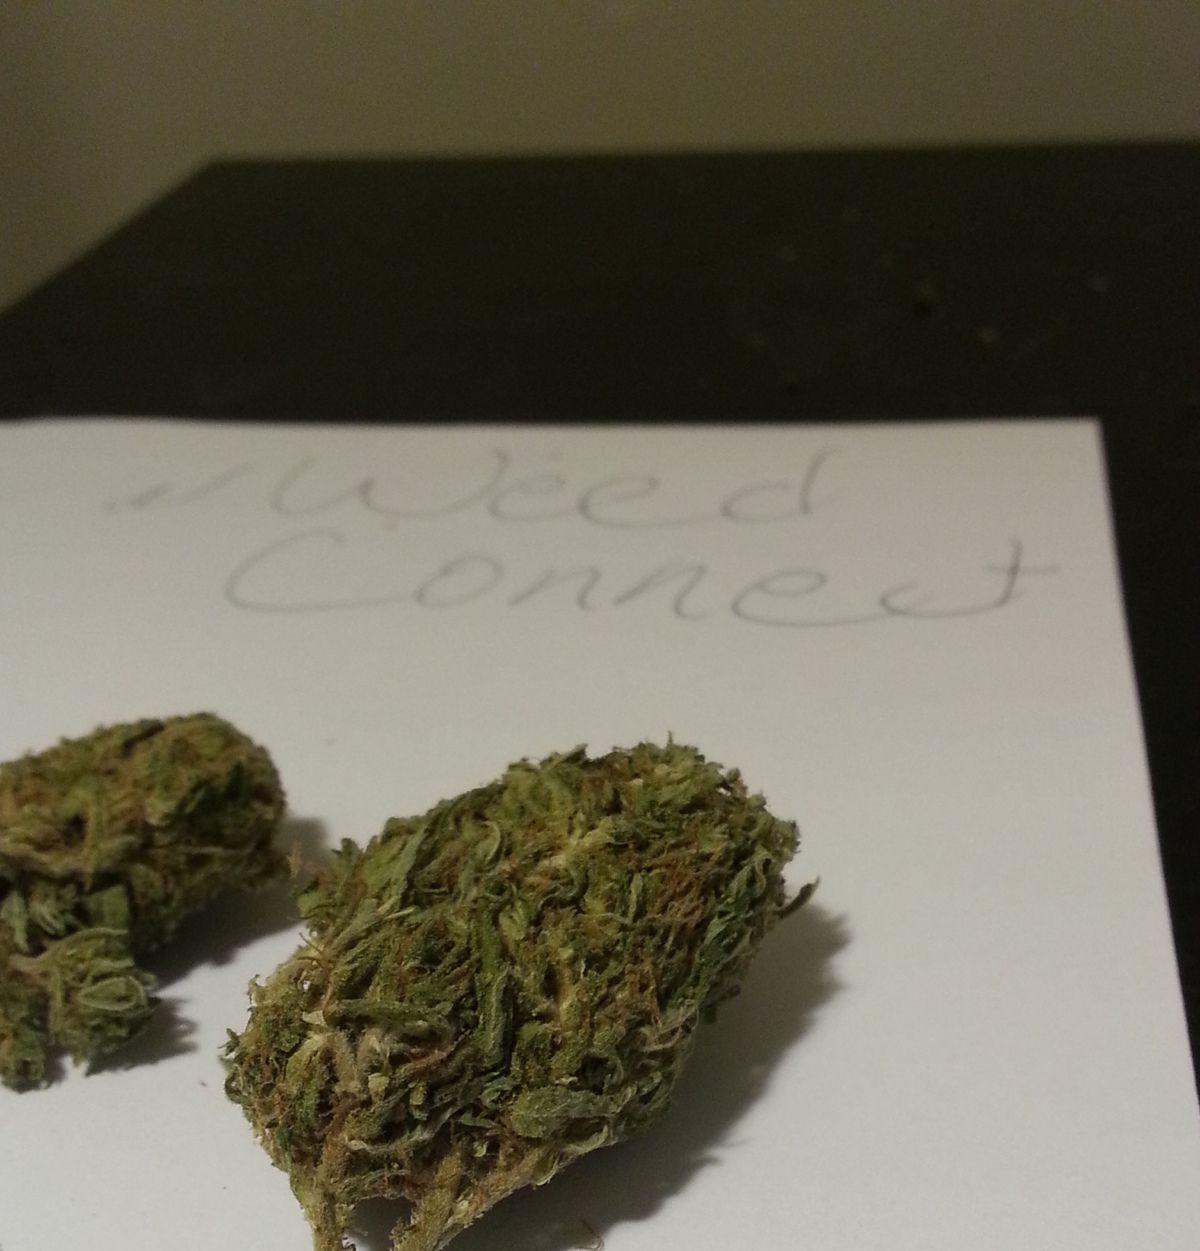 Weed
Connect